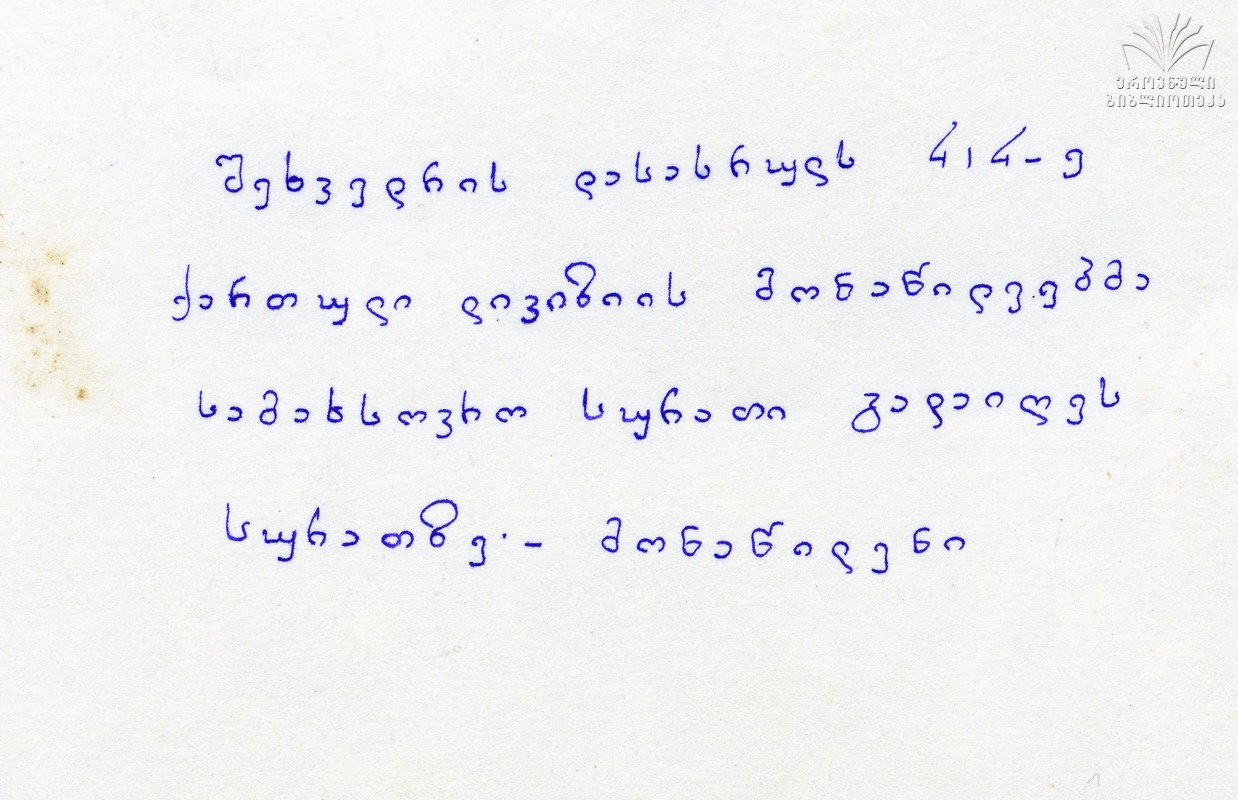 ეროვნული
ბიბლიოთეკა
შეხვედრის დასასრულს 414-ე
ქართული დივიზიის მონაწილეებმა
სამახსოვრო სურათი გადაიღეს
სურათზე.- მონაწილენი